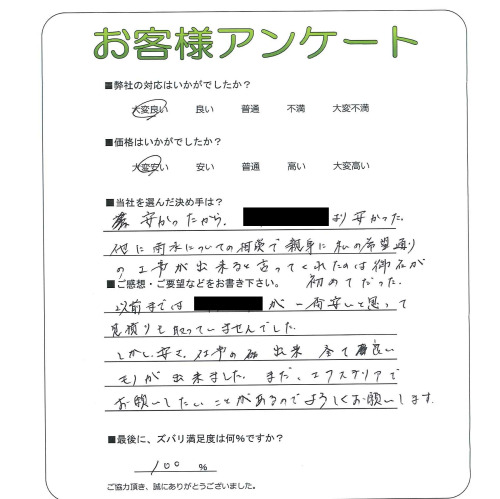 お客様アンケート
■弊社の対応はいかがでしたか？
大変良い 良い 普通 不満 大変不満
■価格はいかがでしたか？
大変安い 安い 普通 高い 大変高い
■当社を選んだ決め手は？
安かったから。 より安かった。
他に雨水についての相談で親身に私の希望通り
の工事が出来ると言ってくれたのは御社が
初めてだった。
■ご感想・ご要望などをお書き下さい。
以前までは が一番安いと思って
見積りも取っていませんでした。
しかし、安さ、仕事の 出来 全て良い
モノが出来ました。また、エクステリアで
お願いしたいことがあるのでよろしくお願いします。
■最後に、ズバリ満足度は何%ですか？
100 %
ご協力頂き、誠にありがとうございました。